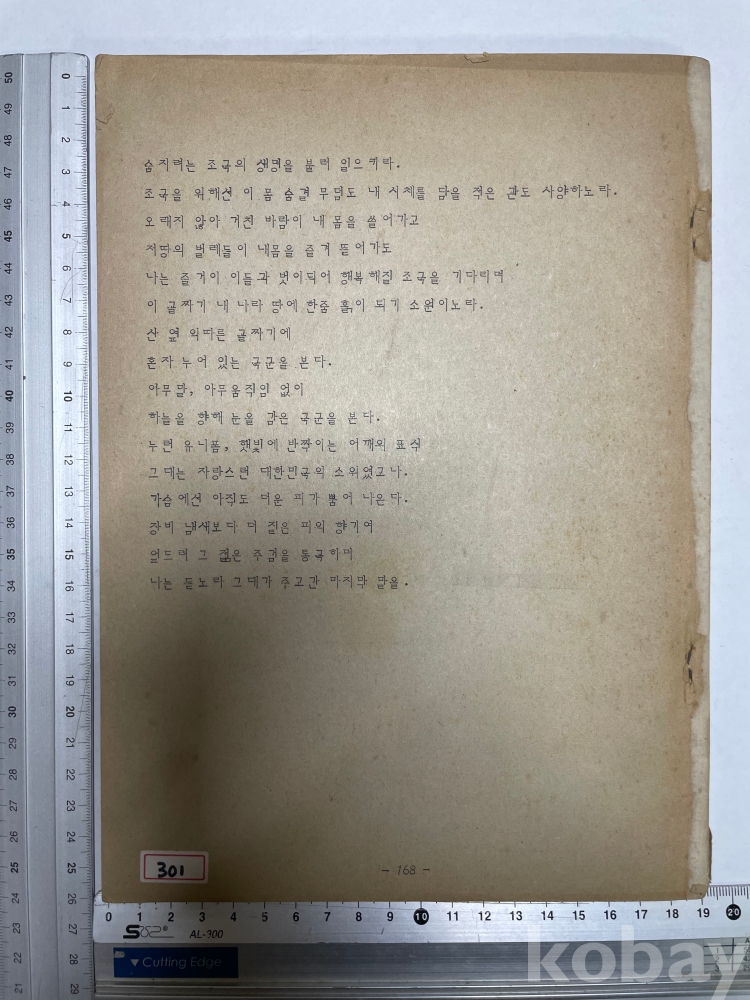 숨지려는 조국의 생명을 불러 일으켜라.
조국을 위해선 이 몸 숨결 무덤도 내 시체를 담을 적은 관도 사양하노라.
오래지 않아 거친 바람이 내 몸을 쓸어가고
저땅의 벌레들이 내몸을 즐겨 뜯어가도
나는 즐겨이 이들과 벗이되어 행복해질 조국을 기다리며
이 골짜기 내 나라 땅에 한줌 흙이 되기 소원이노라.
산 옆 외따른 골짜기에
혼자 누어 있는 국군을 본다.
아무 말, 아무움직임 없이
하늘을 향해 눈을 감은 국군을 본다.
누런 유니폼, 햇빛에 반짝이는 어깨의 표식
그대는 자랑스런 대한민국의 소위였고나.
가슴에선 아직도 더운 피가 뿜어 나온다.
장미 냄새보다 더 짙은 피의 향기여
엎드려 그 젊은 주검을 통곡하며
나는 듣노라 그대가 주고간 마지막 말을.
- 168 -
301
0 1 2 3 4 5 6 7 8 9 10 11 12 13 14 15 16 17 18 19 20
AL-300
Cutting Edge
kobay